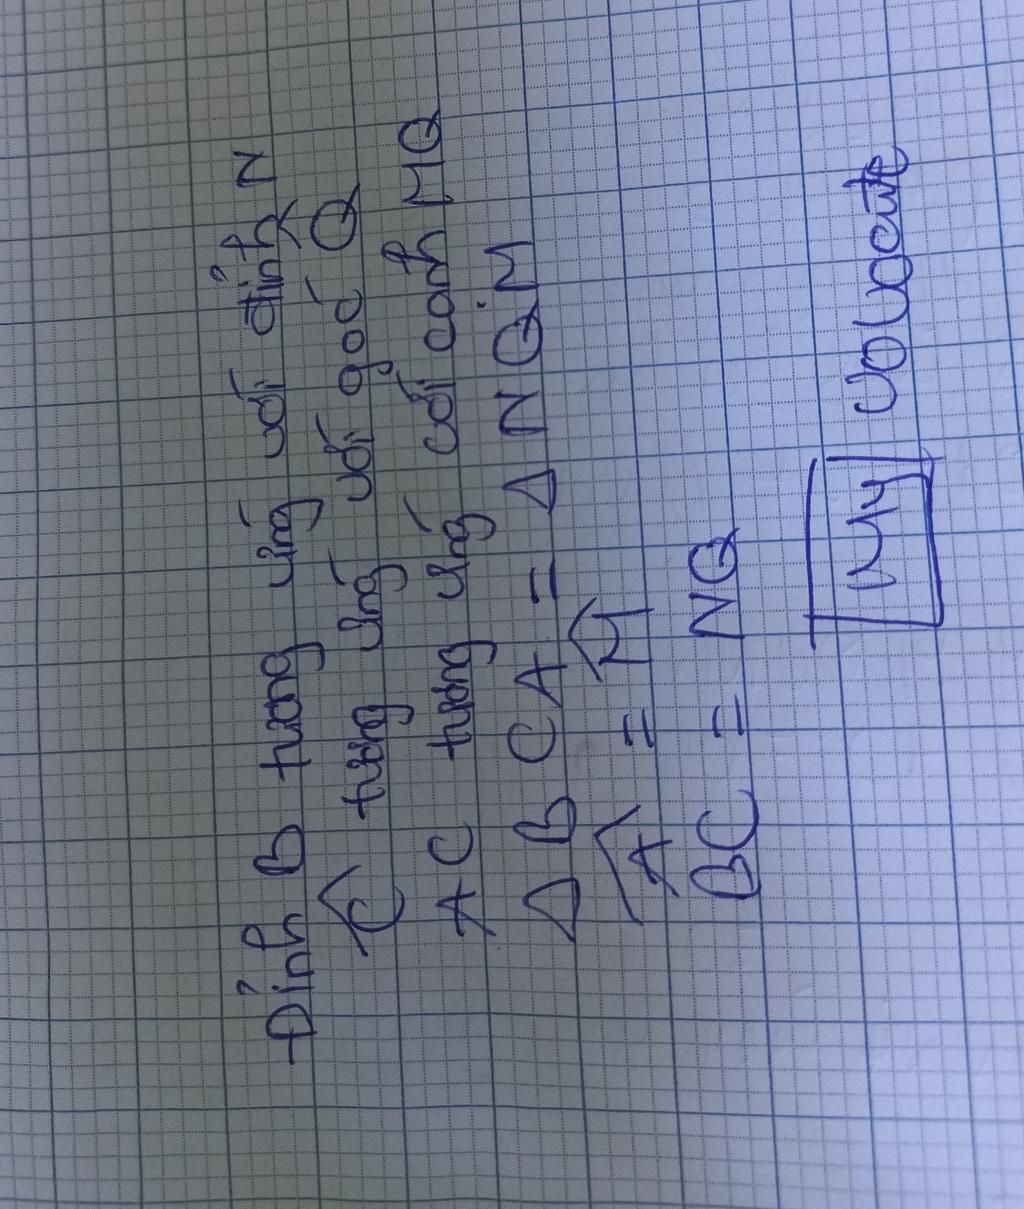 Đỉnh B tương ứng với đỉnh N
Ĉ tương ứng với góc Q̂
AC tương ứng với cạnh MQ
Δ BCA = Δ NQM
Â = M̂
BC = NQ
My